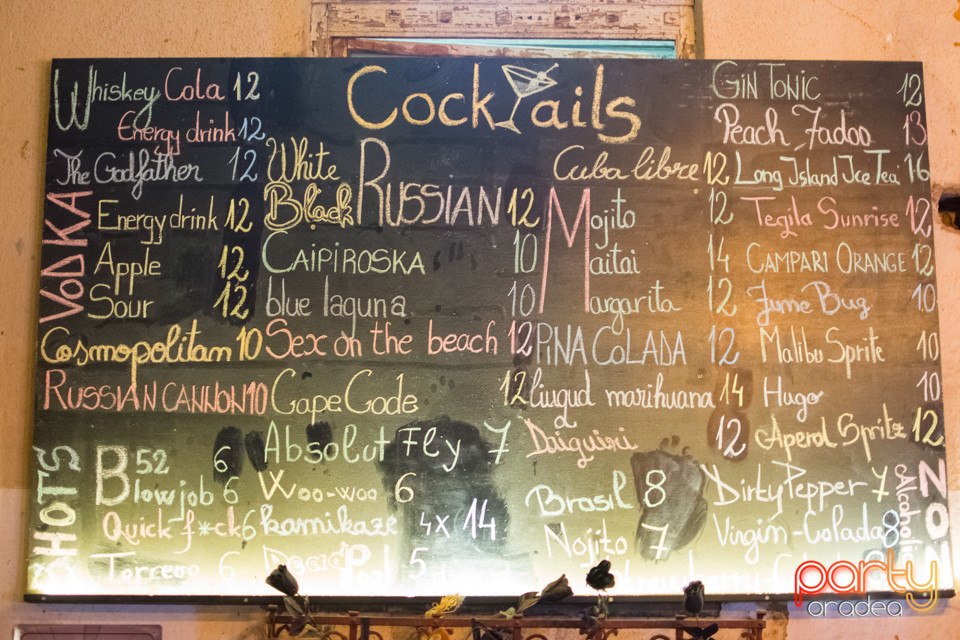 Cocktails
Whiskey Cola 12
Energy drink 12
The Godfather 12
VODKA
Energy drink 12
Apple 12
Sour 12
Cosmopolitan 10
RUSSIAN CANNON 10
SHOTS
B52 6
Blowjob 6
Quick f*ck 6
Torcero 6
White
Black RUSSIAN 12
CAIPIROSKA 10
blue laguna 10
Sex on the beach 12
Cape Code 12
Absolut Fly 7
Woo-woo 6
kamikaze 4x 14
Pool 5
Cuba libre 12
Mojito 12
Maitai 14
Margarita 12
PINA COLADA 12
liugud marihuana 14
Daiguiri 12
Brasil 8
Nojito 7
GIN TONIC 12
Peach Fadoo 13
Long Island Ice Tea 16
Tegila Sunrise 12
CAMPARI ORANGE 12
June Bug 10
Malibu Sprite 10
Hugo 10
Aperol Spritz 12
NON
Alcoholic
Dirty Pepper 7
Virgin-Colada 8
party
oradea